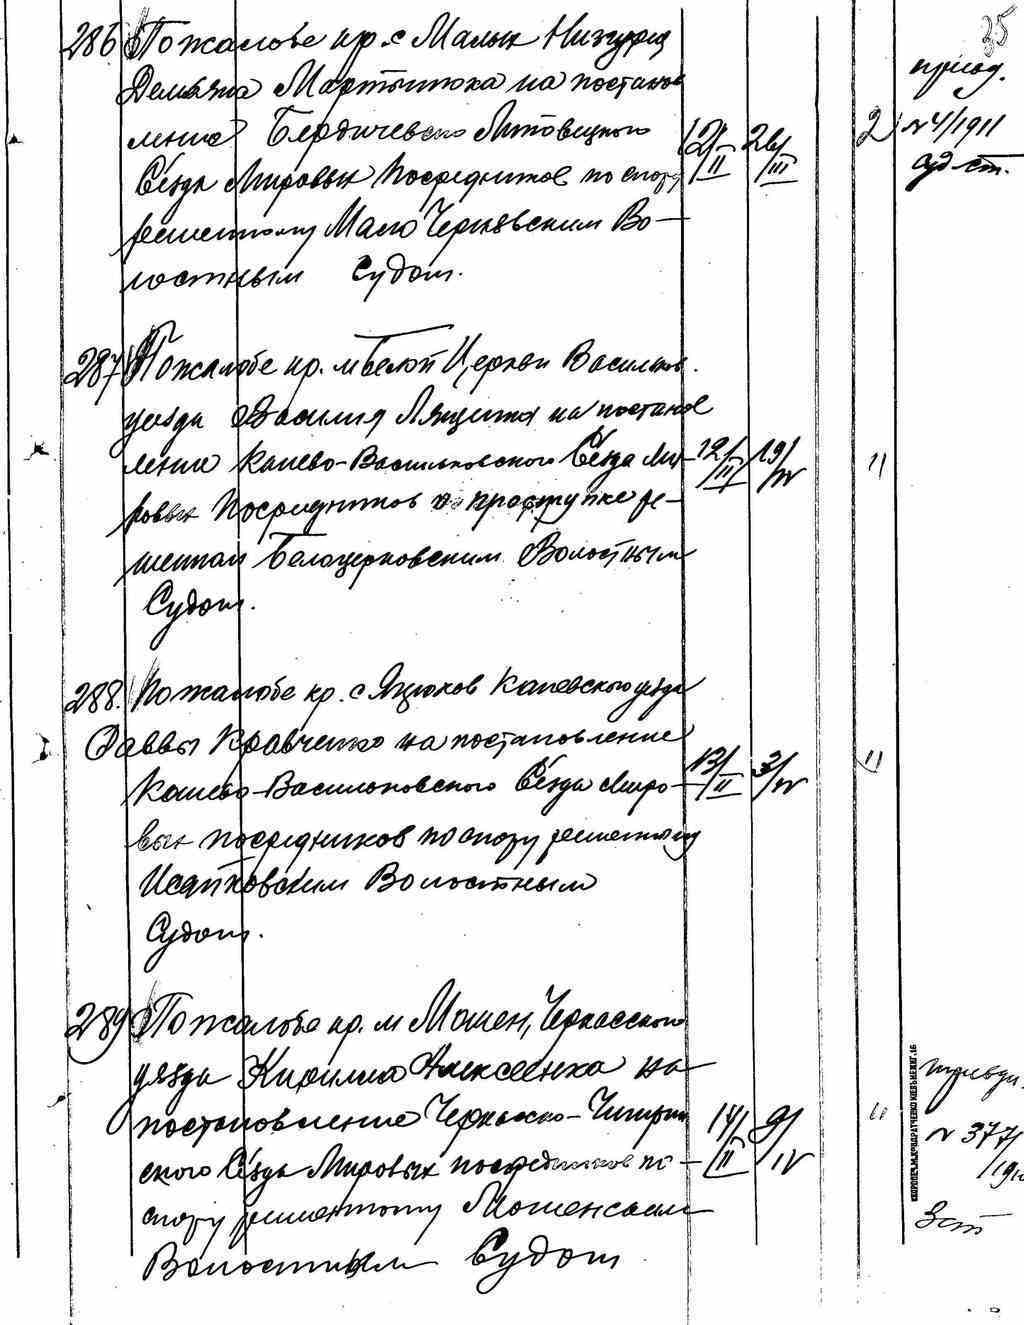 35
286 По жалобе кр. с Малых Низгурец
Демьяна Мартынюка на постанов
ление Бердичевско Липовецкого
Съезда Мировых Посредников по спору
решенному Мало Чернявским Во-
лостным Судом.
12/II 26/III
2
№ 4/1911
суд. ст.
287 По жалобе кр. м Белой Церкви Васильков.
уезда Василия на постанов
ление Канево-Васильковского Съезда Ми-
ровых Посредников о проступке ре-
шенном Белоцерковским Волостным
Судом.
12/III 19/IV
11
288. По жалобе кр. с Яцюков Каневского уезда
Саввы Кравченко на постановление
Канево-Васильковского Съезда Миро-
вых посредников по спору решенному
Исайковским Волостным
Судом.
13/II 3/IV
11
289 По жалобе кр. м Мошен, Черкасского
уезда Кирилла Алексеенка на
постановление Черкасско-Чигирин
ского Съезда Мировых посредников по
спору решенному Мошенским
Волостным Судом
14/II 9/IV
11
№ 377/
191
3 ст